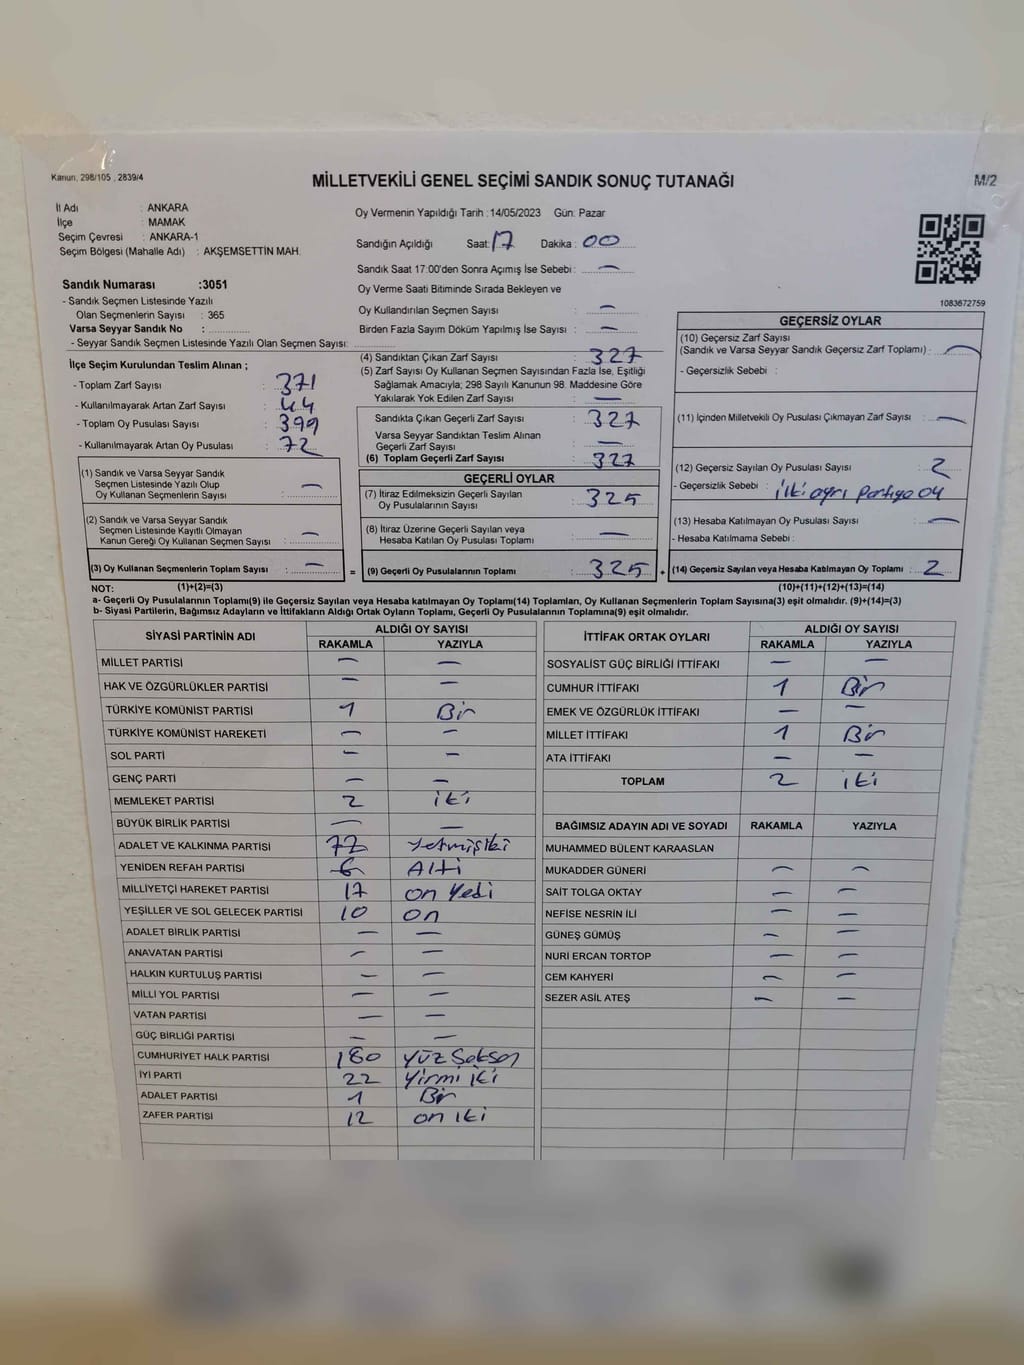 Kanun, 298/105 , 2839/4
MİLLETVEKİLİ GENEL SEÇİMİ SANDIK SONUÇ TUTANAĞI
M/2
İl Adı : ANKARA
İlçe : MAMAK
Seçim Çevresi : ANKARA-1
Seçim Bölgesi (Mahalle Adı) : AKŞEMSETTİN MAH.
Oy Vermenin Yapıldığı Tarih :14/05/2023 Gün: Pazar
Sandığın Açıldığı Saat: 17 Dakika : 00
Sandık Saat 17:00'den Sonra Açımış İse Sebebi : —
Oy Verme Saati Bitiminde Sırada Bekleyen ve
Oy Kullandırılan Seçmen Sayısı : —
Birden Fazla Sayım Döküm Yapılmış İse Sayısı : —
1083672759
Sandık Numarası :3051
- Sandık Seçmen Listesinde Yazılı
Olan Seçmenlerin Sayısı : 365
Varsa Seyyar Sandık No :
- Seyyar Sandık Seçmen Listesinde Yazılı Olan Seçmen Sayısı:
İlçe Seçim Kurulundan Teslim Alınan ;
- Toplam Zarf Sayısı : 371
- Kullanılmayarak Artan Zarf Sayısı : 44
- Toplam Oy Pusulası Sayısı : 399
- Kullanılmayarak Artan Oy Pusulası : 72
(1) Sandık ve Varsa Seyyar Sandık
Seçmen Listesinde Yazılı Olup
Oy Kullanan Seçmenlerin Sayısı : —
(2) Sandık ve Varsa Seyyar Sandık
Seçmen Listesinde Kayıtlı Olmayan
Kanun Gereği Oy Kullanan Seçmen Sayısı : —
(3) Oy Kullanan Seçmenlerin Toplam Sayısı : —
(4) Sandıktan Çıkan Zarf Sayısı : 327
(5) Zarf Sayısı Oy Kullanan Seçmen Sayısından Fazla İse, Eşitliği
Sağlamak Amacıyla; 298 Sayılı Kanunun 98. Maddesine Göre
Yakılarak Yok Edilen Zarf Sayısı : —
Sandıkta Çıkan Geçerli Zarf Sayısı : 327
Varsa Seyyar Sandıktan Teslim Alınan
Geçerli Zarf Sayısı : —
(6) Toplam Geçerli Zarf Sayısı : 327
GEÇERLİ OYLAR
(7) İtiraz Edilmeksizin Geçerli Sayılan
Oy Pusulalarının Sayısı : 325
(8) İtiraz Üzerine Geçerli Sayılan veya
Hesaba Katılan Oy Pusulası Toplamı : —
= (9) Geçerli Oy Pusulalarının Toplamı : 325 +
GEÇERSİZ OYLAR
(10) Geçersiz Zarf Sayısı
(Sandık ve Varsa Seyyar Sandık Geçersiz Zarf Toplamı) : —
- Geçersizlik Sebebi :
(11) İçinden Milletvekili Oy Pusulası Çıkmayan Zarf Sayısı : —
(12) Geçersiz Sayılan Oy Pusulası Sayısı : 2
- Geçersizlik Sebebi : iki ayrı partiye oy
(13) Hesaba Katılmayan Oy Pusulası Sayısı : —
- Hesaba Katılmama Sebebi :
(14) Geçersiz Sayılan veya Hesaba Katılmayan Oy Toplamı : 2
NOT: (1)+(2)=(3) (10)+(11)+(12)+(13)=(14)
a- Geçerli Oy Pusulalarının Toplamı(9) ile Geçersiz Sayılan veya Hesaba katılmayan Oy Toplamı(14) Toplamları, Oy Kullanan Seçmenlerin Toplam Sayısına(3) eşit olmalıdır. (9)+(14)=(3)
b- Siyasi Partilerin, Bağımsız Adayların ve İttifakların Aldığı Ortak Oyların Toplamı, Geçerli Oy Pusulalarının Toplamına(9) eşit olmalıdır.
SİYASİ PARTİNİN ADI ALDIĞI OY SAYISI
RAKAMLA YAZIYLA
MİLLET PARTİSİ — —
HAK VE ÖZGÜRLÜKLER PARTİSİ — —
TÜRKİYE KOMÜNİST PARTİSİ 1 Bir
TÜRKİYE KOMÜNİST HAREKETİ — —
SOL PARTİ — —
GENÇ PARTİ — —
MEMLEKET PARTİSİ 2 iki
BÜYÜK BİRLİK PARTİSİ — —
ADALET VE KALKINMA PARTİSİ 72 Yetmişiki
YENİDEN REFAH PARTİSİ 6 Altı
MİLLİYETÇİ HAREKET PARTİSİ 17 on Yedi
YEŞİLLER VE SOL GELECEK PARTİSİ 10 on
ADALET BİRLİK PARTİSİ — —
ANAVATAN PARTİSİ — —
HALKIN KURTULUŞ PARTİSİ — —
MİLLİ YOL PARTİSİ — —
VATAN PARTİSİ — —
GÜÇ BİRLİĞİ PARTİSİ — —
CUMHURİYET HALK PARTİSİ 180 Yüz Seksen
İYİ PARTİ 22 Yirmi iki
ADALET PARTİSİ 1 Bir
ZAFER PARTİSİ 12 on iki
İTTİFAK ORTAK OYLARI ALDIĞI OY SAYISI
RAKAMLA YAZIYLA
SOSYALİST GÜÇ BİRLİĞİ İTTİFAKI — —
CUMHUR İTTİFAKI 1 Bir
EMEK VE ÖZGÜRLÜK İTTİFAKI — —
MİLLET İTTİFAKI 1 Bir
ATA İTTİFAKI — —
TOPLAM 2 iki
BAĞIMSIZ ADAYIN ADI VE SOYADI RAKAMLA YAZIYLA
MUHAMMED BÜLENT KARAASLAN
MUKADDER GÜNERİ — —
SAİT TOLGA OKTAY — —
NEFİSE NESRİN İLİ — —
GÜNEŞ GÜMÜŞ — —
NURİ ERCAN TORTOP — —
CEM KAHYERİ — —
SEZER ASİL ATEŞ — —